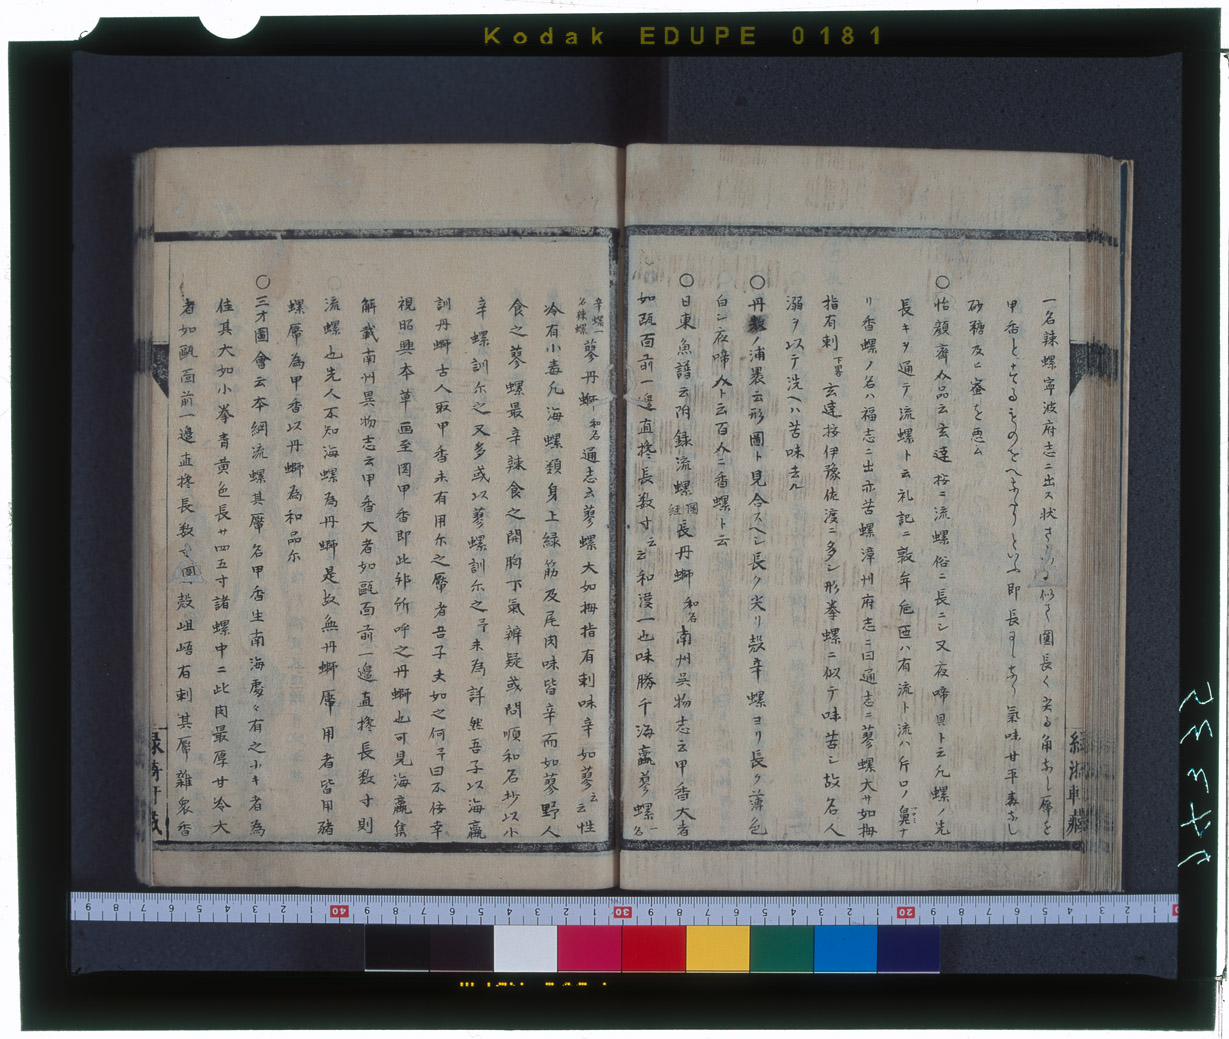 Kodak EDUPE 0181
一名辣螺寧波府志ニ出ス状さゝいに似て圓長く尖る角なし厴を
甲香とするものをへなたりといふ即長にしなり氣味甘平毒なし
砂糖及ヒ蜜を悪ム
○怡顔齋介品云玄達按ニ流螺俗ニ長ニシ又夜啼貝ト云凡螺ノ先
長キヲ通テ流螺ト云礼記ニ敦牟巵匜ハ有流ト流ハ斤口ノ鼻ナ
リ香螺ノ名ハ福志ニ出亦苦螺漳州府志ニ曰通志ニ蓼螺大サ如拇
指有刺下畧玄達按伊豫佐渡ニ多シ形拳螺ニ似テ味苦シ故名人
溺ヲ以テ洗ヘハ苦味去ル
○丹敷ノ浦裏云形圖ト見合スヘシ長ク尖リ殻辛螺ヨリ長ク薄色
白シ夜啼介ト云百介ニ香螺ト云
○日東魚譜云附録流螺圖経長丹螄和名南州異物志云甲香大者
如甌面前一邉直搀長数寸云云和漫一也味勝千海蠃蓼螺一名
辛螺一名辣螺蓼丹螄和名通志云蓼螺大如拇指有刺味辛如蓼云云性
冷有小毒凡海螺類身上緑筋及尾肉味皆辛而如蓼野人
食之蓼螺最辛辣食之開胸下氣辨疑或問順和名抄以小
辛螺訓尓之又多或以蓼螺訓尓之予未為詳然吾子以海蠃
訓丹螄古人取甲香未有用尓之厴者吾子夫如之何予曰不侫幸
視昭興本草画至圖甲香即此邦所呼之丹螄也可見海蠃焦
解載南州異物志云甲香大者如甌面前一邉直搀長数寸則
流螺也先人不知海螺為丹螄是故無丹螄厴用者皆用豬
螺厴為甲香以丹螄為和品尓
○三才圖會云本綱流螺其厴名甲香生南海處々有之小キ者為
佳其大如小拳青黄色長サ四五寸諸螺中ニ此肉最厚甘冷大
者如甌面前一邉直搀長数寸圍殻岨峿有刺其厴雜衆香